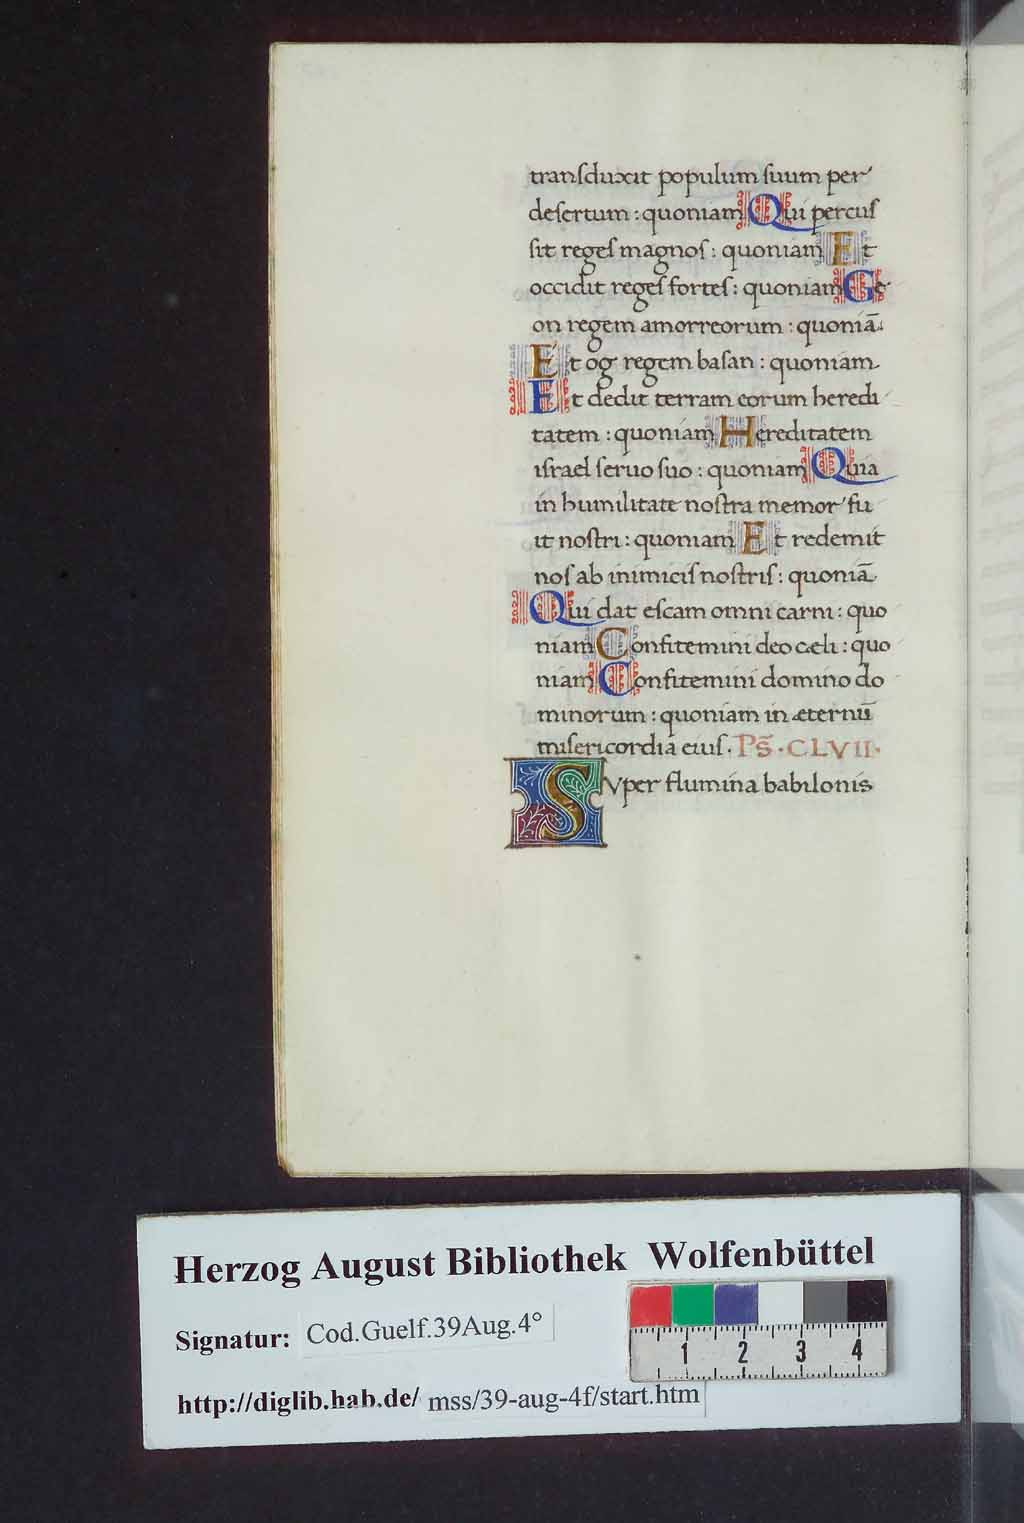 transduxit populum suum per
desertum : quoniam Qui percus
sit reges magnos : quoniam Et
occidit reges fortes : quoniam Se
on regem amorreorum : quoniā.
Et og regem basan : quoniam
Et dedit terram eorum heredi
tatem : quoniam Hereditatem
israel seruo suo : quoniam Quia
in humilitate nostra memor fu
it nostri : quoniam Et redemit
nos ab inimicis nostris : quoniā.
Qui dat escam omni carni : quo
niam Confitemini deo cæli : quo
niam Confitemini domino do
minorum : quoniam in æternū
misericordia eius. Ps̄ · CLVII ·
SVper flumina babilonis
Herzog August Bibliothek Wolfenbüttel
Signatur: Cod.Guelf.39Aug.4°
1 2 3 4
http://diglib.hab.de/ mss/39-aug-4f/start.htm